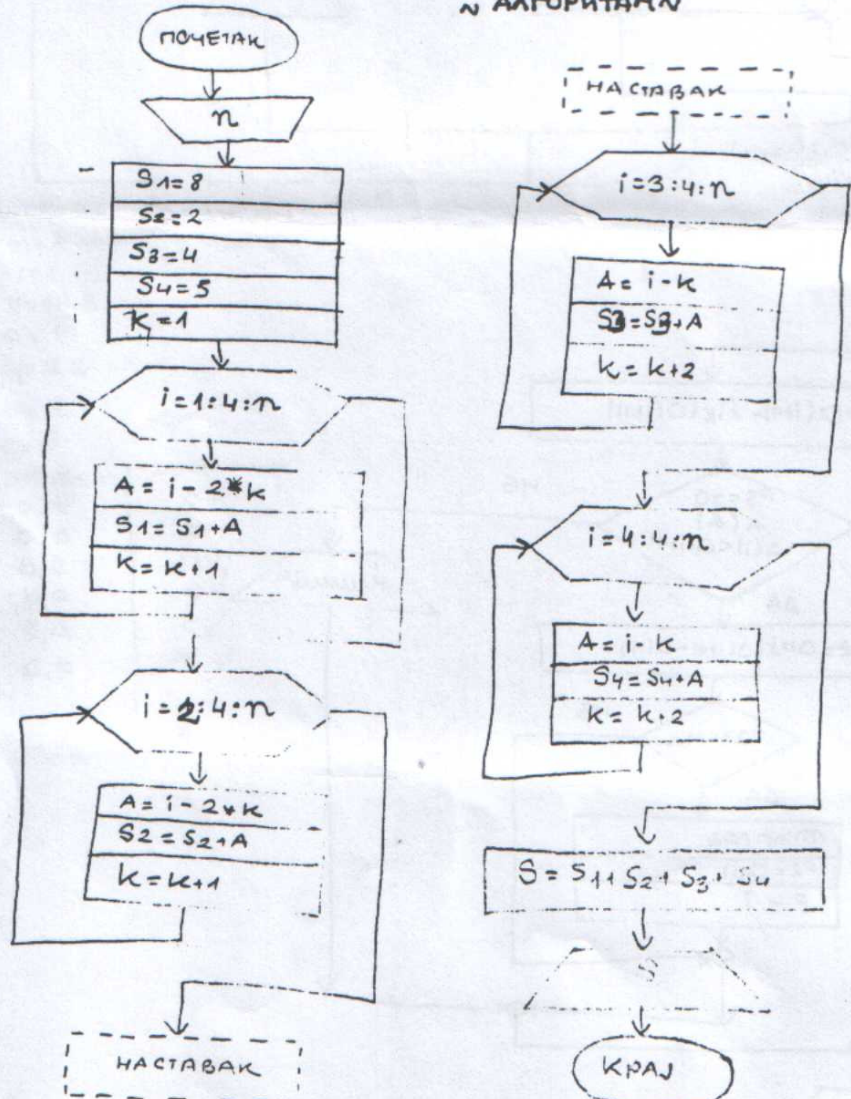 АЛГОРИТАМ
ПОЧЕТАК
n
S1=8
S2=2
S3=4
S4=5
K=1
i=1:4:n
A = i-2*k
S1=S1+A
K=K+1
i=2:4:n
A=i-2*k
S2=S2+A
K=K+1
НАСТАВАК
НАСТАВАК
i=3:4:n
A= i-k
S3=S3+A
k=k+2
i=4:4:n
A=i-k
S4=S4+A
k=k+2
S=S1+S2+S3+S4
КРАЈ